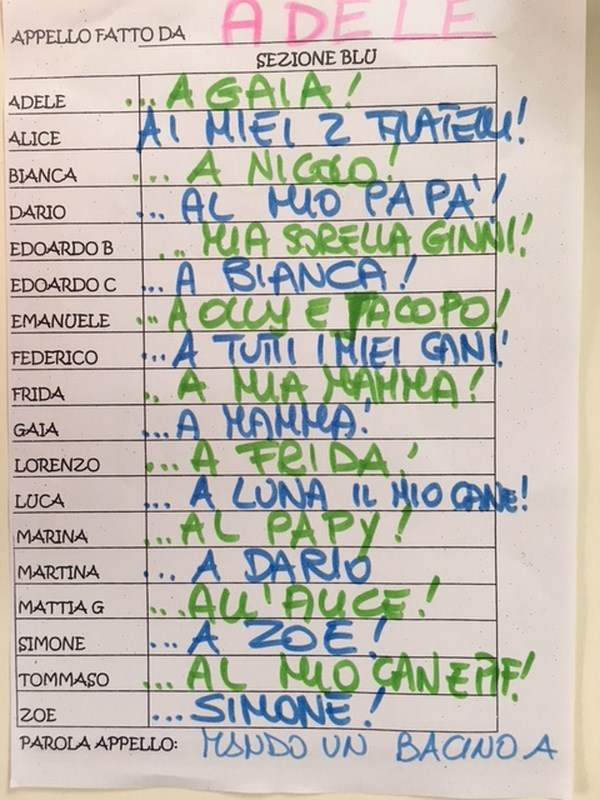 APPELLO FATTO DA ADELE
SEZIONE BLU
ADELE ...A GAIA!
ALICE AI MIEI 2 FRATELLI!
BIANCA ... A NICOLO!
DARIO ... AL MIO PAPA'!
EDOARDO B ... MIA SORELLA GINNI!
EDOARDO C ... A BIANCA!
EMANUELE ... A OLLY E JACOPO!
FEDERICO ... A TUTTI I MIEI CANI!
FRIDA .. A MIA MAMMA!
GAIA ... A MAMMA!
LORENZO ... A FRIDA!
LUCA ... A LUNA IL MIO CANE!
MARINA ... AL PAPY!
MARTINA ... A DARIO
MATTIA G ... ALL'ALICE!
SIMONE ... A ZOE!
TOMMASO ... AL MIO CANE
ZOE ... SIMONE!
PAROLA APPELLO: MANDO UN BACINO A